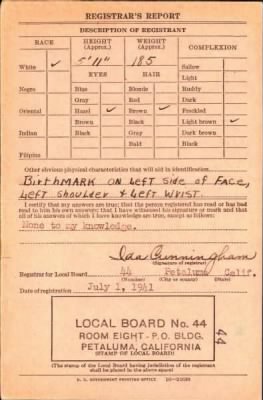 REGISTRAR'S REPORT
DESCRIPTION OF REGISTRANT
RACE HEIGHT (Approx.) WEIGHT (Approx.) COMPLEXION
White ✓ 5' 11" 185 Sallow
EYES HAIR Light
Negro Blue Blonde Ruddy
Gray Red Dark
Oriental Hazel ✓ Brown ✓ Freckled
Brown Black Light brown ✓
Indian Black Gray Dark brown
Bald Black
Filipino
Other obvious physical characteristics that will aid in identification
BirthMARK ON Left Side of FACE,
Left Shoulder & Left Wrist.
I certify that my answers are true; that the person registered has read or has had
read to him his own answers; that I have witnessed his signature or mark and that
all of his answers of which I have knowledge are true, except as follows:
None to my knowledge.
Ida Cunningham
(Signature of registrar)
Registrar for Local Board 44 Petaluma Calif.
(Number) (City or county) (State)
Date of registration July 1, 1941
LOCAL BOARD No. 44
ROOM EIGHT - P.O. BLDG.
PETALUMA, CALIFORNIA
(STAMP OF LOCAL BOARD)
44
(The stamp of the Local Board having jurisdiction of the registrant
shall be placed in the above space)
U. S. GOVERNMENT PRINTING OFFICE